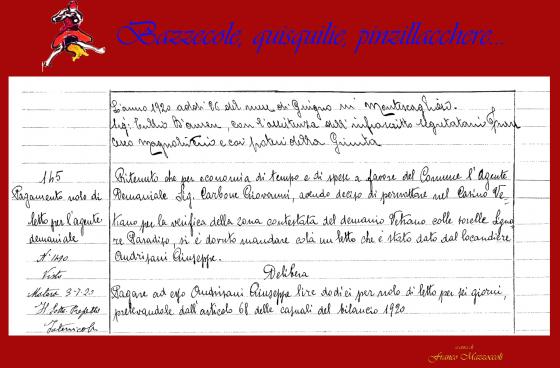 Bazzecole, quisquilie, pinzillacchere...
L'anno 1920 addì 26 del mese di Giugno in Montescaglioso.
Sig: Tullio D'Amen, con l'assistenza dell'infrascritto segretario
Magnolfi e coi poteri della Giunta
145
Pagamento nolo di
letto per l'agente
demaniale
N° 1490
Visto
Matera 3-7-20
Il Sotto Prefetto
Ritenuto che per economia di tempo e di spese a favore del Comune l'Agente
Demaniale Sig. Carbone Giovanni, avendo deciso di pernottare nel Casino Ve-
trano per la verifica della zona contestata del demanio Vetrano colle sorelle
re Paradiso, si è dovuto mandare colà un letto che è stato dato dal locandiere
Andrisani Giuseppe.
Delibera
Pagare ad esso Andrisani Giuseppe lire dodici per nolo di letto per sei giorni,
prelevandole dall'articolo 68 delle casuali del bilancio 1920
a cura di
Franco Mazzoccoli